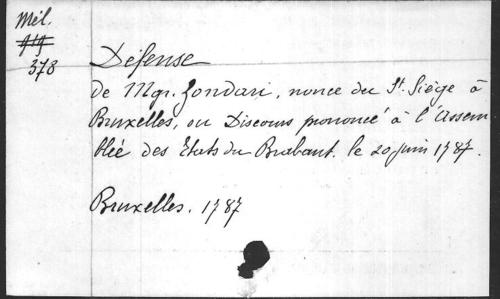 Mél.
378
Défense
de Mgr. Zondari, nonce du St. Siège à
Bruxelles, ou Discours prononcé à l'Assem
blée des Etats du Brabant. le 20 juin 1787.
Bruxelles. 1787